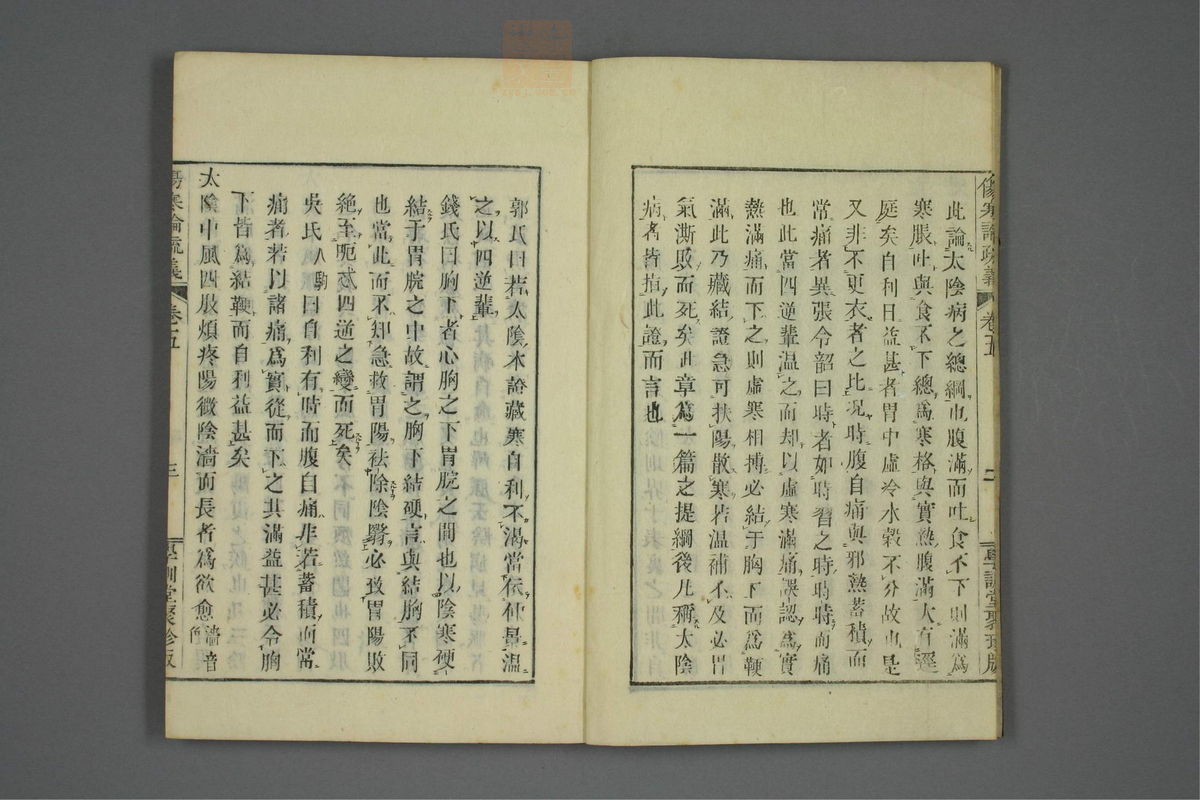 傷寒論疏義
卷五
二
學訓堂聚珍版
此論太陰病之總綱也腹滿而吐食不下則滿爲
寒脹吐與食不下總爲寒格與實熱腹滿大有逕
庭矣自利日益甚者胃中虛冷水穀不分故也是
又非不更衣者之比況時腹自痛與邪熱蓄積而
常痛者異張令韶曰時者如時習之時時時而痛
也此當四逆輩温之而却以虛寒滿痛誤認爲實
熱滿痛而下之則虛寒相搏必結于胸下而爲鞕
滿此乃藏結證急可扶陽散寒若温補不及必胃
氣澌敗而死矣此章爲一篇之提綱後凡稱太陰
病者皆指此證而言也
郭氏曰若太陰本證藏寒自利不渴當依仲景温
之以四逆輩
錢氏曰胸下者心胸之下胃脘之間也以陰寒硬
結于胃脘之中故謂之胸下結硬言與結胸不同
也當此而不知急救胃陽祛除陰翳必致胃陽敗
絶至呃忒四逆之變而死矣
吳氏人駒曰自利有時而腹自痛非若蓄積而常
痛者若以諸痛爲實從而下之其滿益甚必令胸
下皆爲結鞕而自利益甚矣
太陰中風四肢煩疼陽微陰濇而長者爲欲愈濇音
傷寒論疏義
卷五
三
學訓堂聚珍版